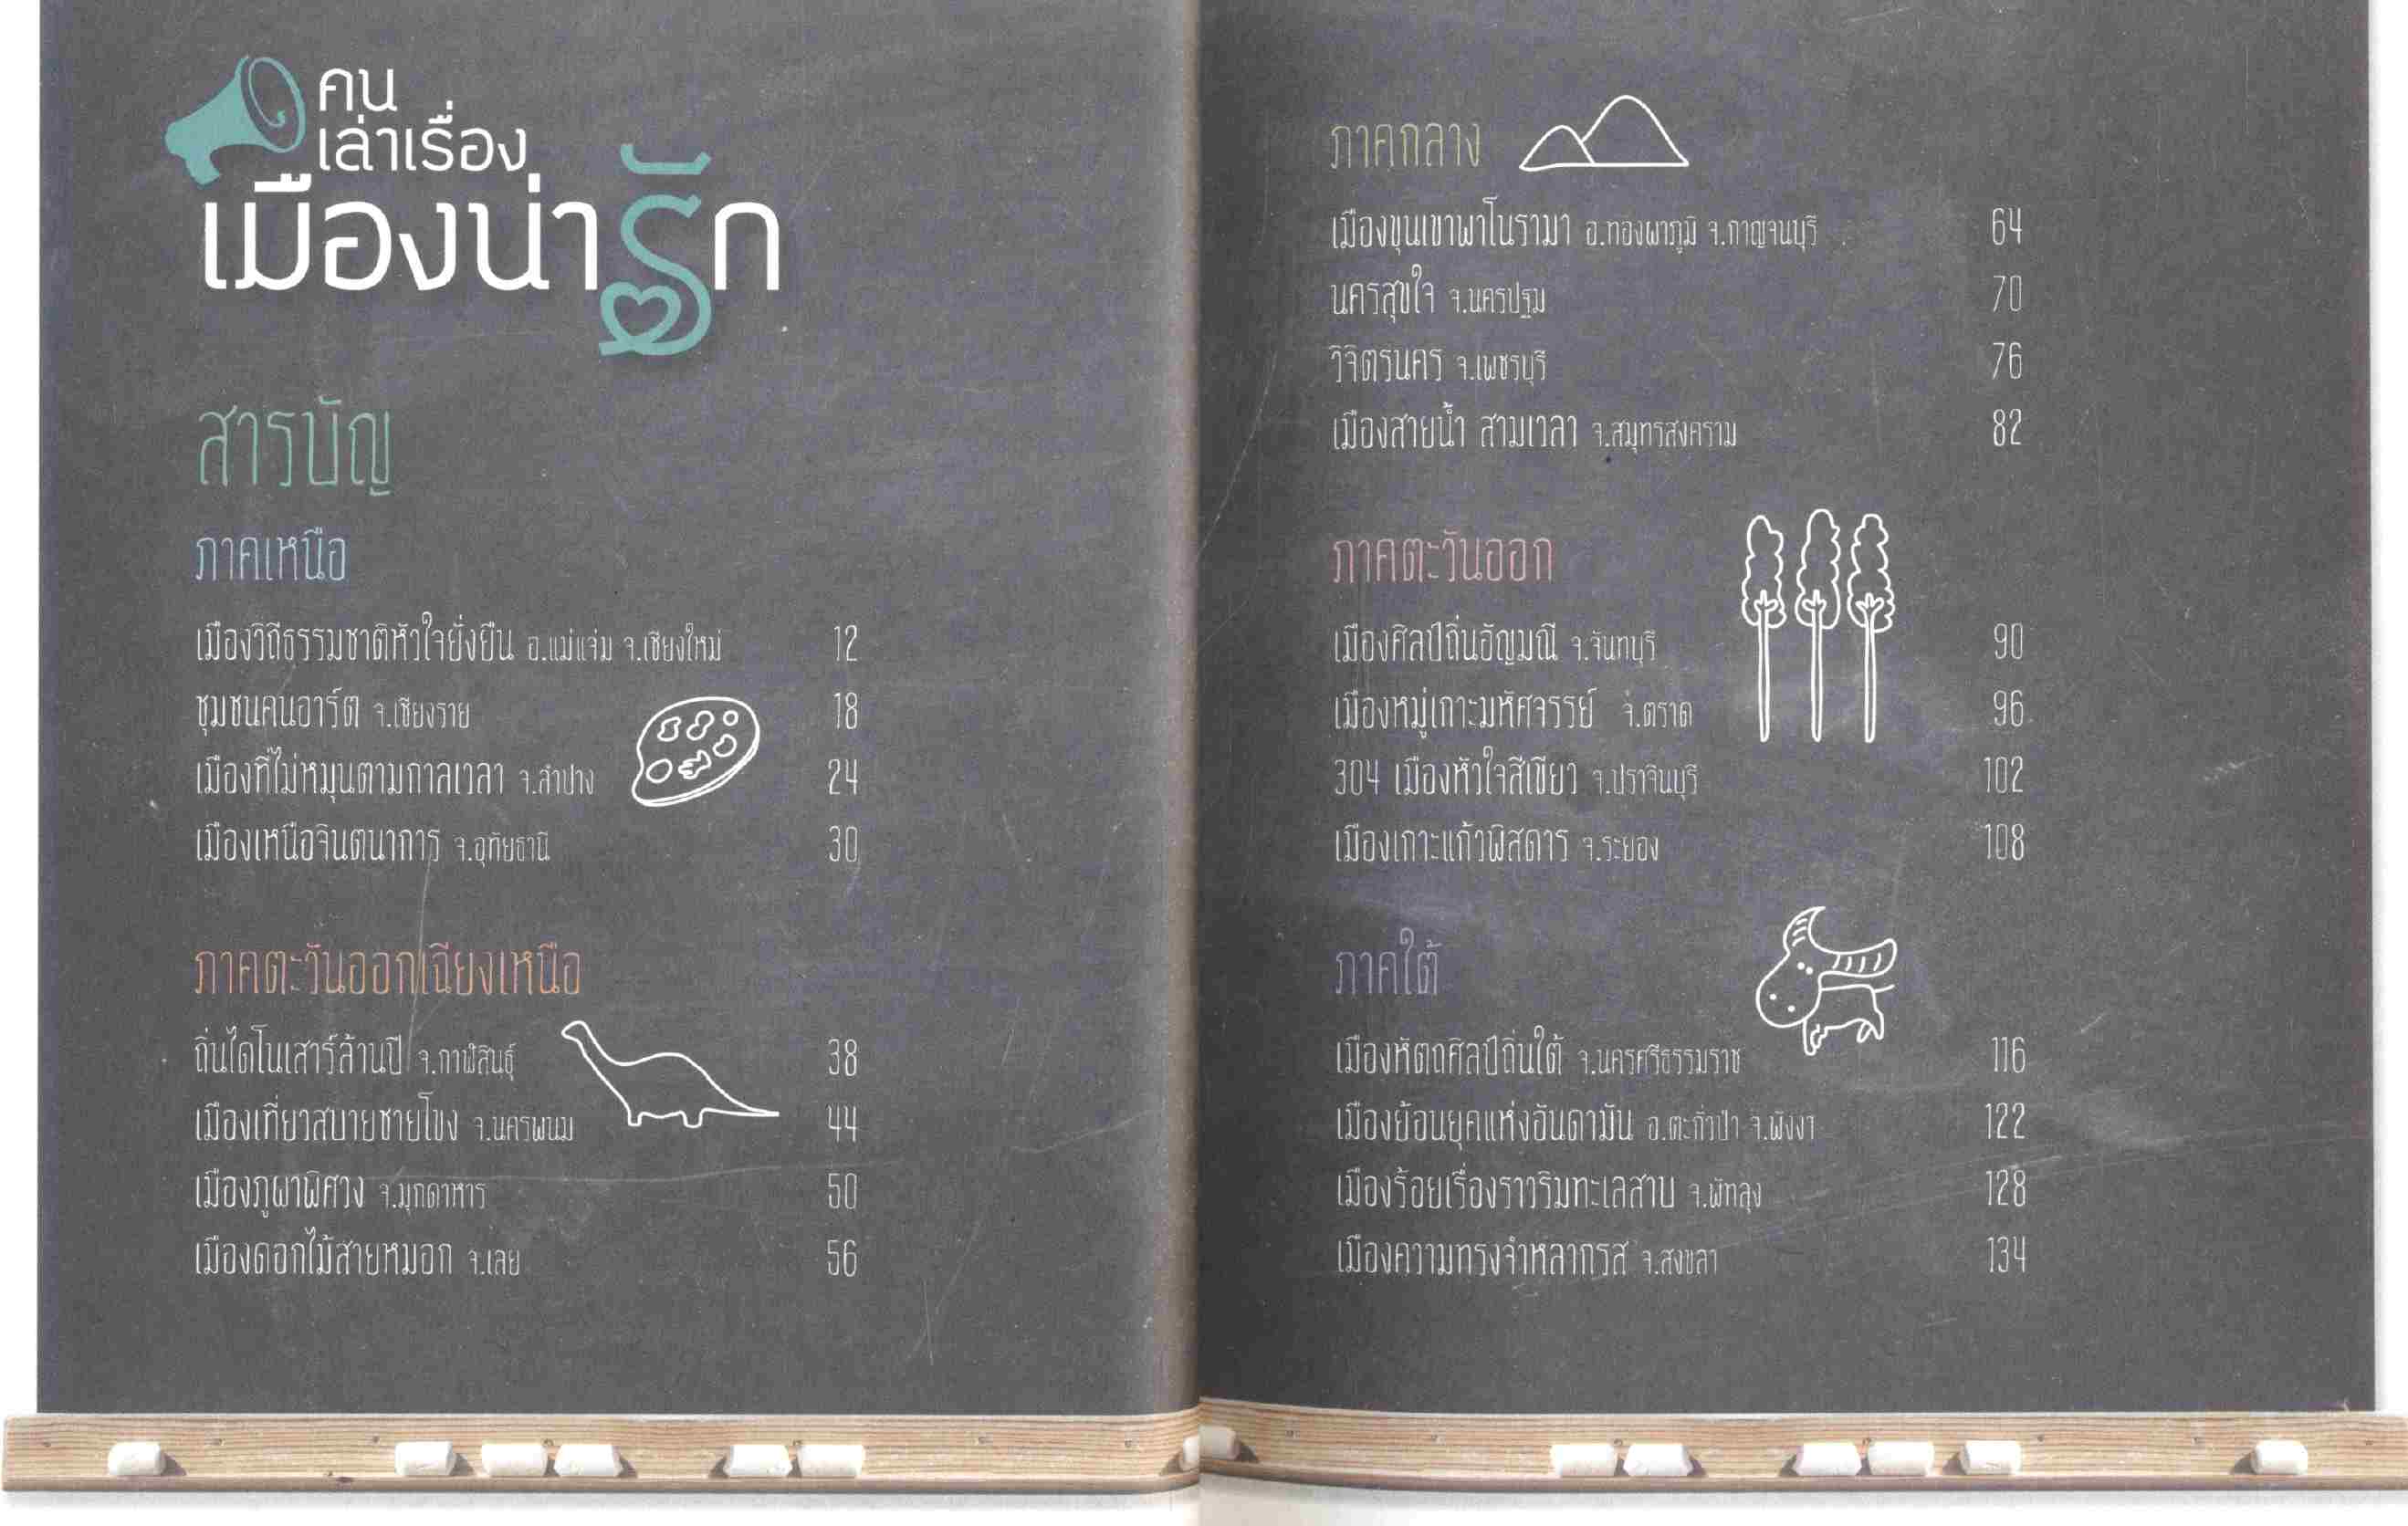 คน
เล่าเรื่อง
เมืองน่ารัก
สารบัญ
ภาคเหนือ
เมืองวิถีธรรมชาติหัวใจยั่งยืน อ.แม่แจ่ม จ.เชียงใหม่ 12
ชุมชนคนอาร์ต จ.เชียงราย 18
เมืองที่ไม่หมุนตามกาลเวลา จ.ลำปาง 24
เมืองเหนือจินตนาการ จ.อุทัยธานี 30
ภาคตะวันออกเฉียงเหนือ
ถิ่นไดโนเสาร์ล้านปี จ.กาฬสินธุ์ 38
เมืองเที่ยวสบายชายโขง จ.นครพนม 44
เมืองภูผาพิศวง จ.มุกดาหาร 50
เมืองดอกไม้สายหมอก จ.เลย 56
ภาคกลาง
เมืองขุนเขาพาโนรามา อ.ทองผาภูมิ จ.กาญจนบุรี 64
นครสุขใจ จ.นครปฐม 70
วิจิตรนคร จ.เพชรบุรี 76
เมืองสายน้ำ สามเวลา จ.สมุทรสงคราม 82
ภาคตะวันออก
เมืองศิลป์ถิ่นอัญมณี จ.จันทบุรี 90
เมืองหมู่เกาะมหัศจรรย์ จ.ตราด 96
304 เมืองหัวใจสีเขียว จ.ปราจีนบุรี 102
เมืองเกาะแก้วพิสดาร จ.ระยอง 108
ภาคใต้
เมืองหัตถศิลป์ถิ่นใต้ จ.นครศรีธรรมราช 116
เมืองย้อนยุคแห่งอันดามัน อ.ตะกั่วป่า จ.พังงา 122
เมืองร้อยเรื่องราวริมทะเลสาบ จ.พัทลุง 128
เมืองความทรงจำหลากรส จ.สงขลา 134